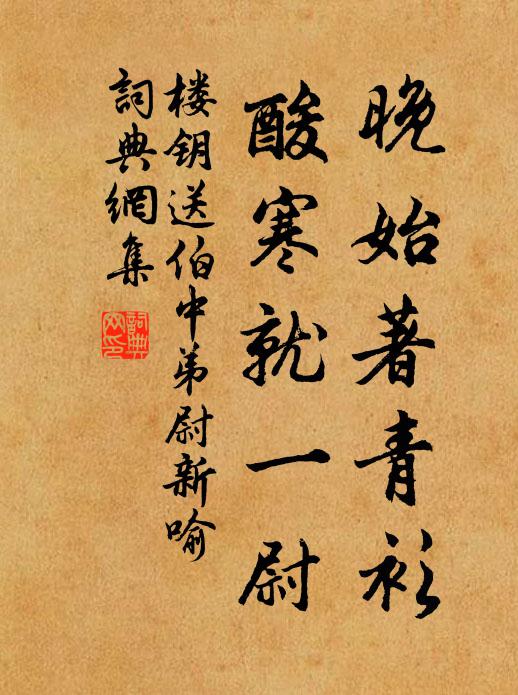 晚始著青衫
酸寒就一尉
楼钥送伯中弟尉新喻
詞典網集
詞典
网印